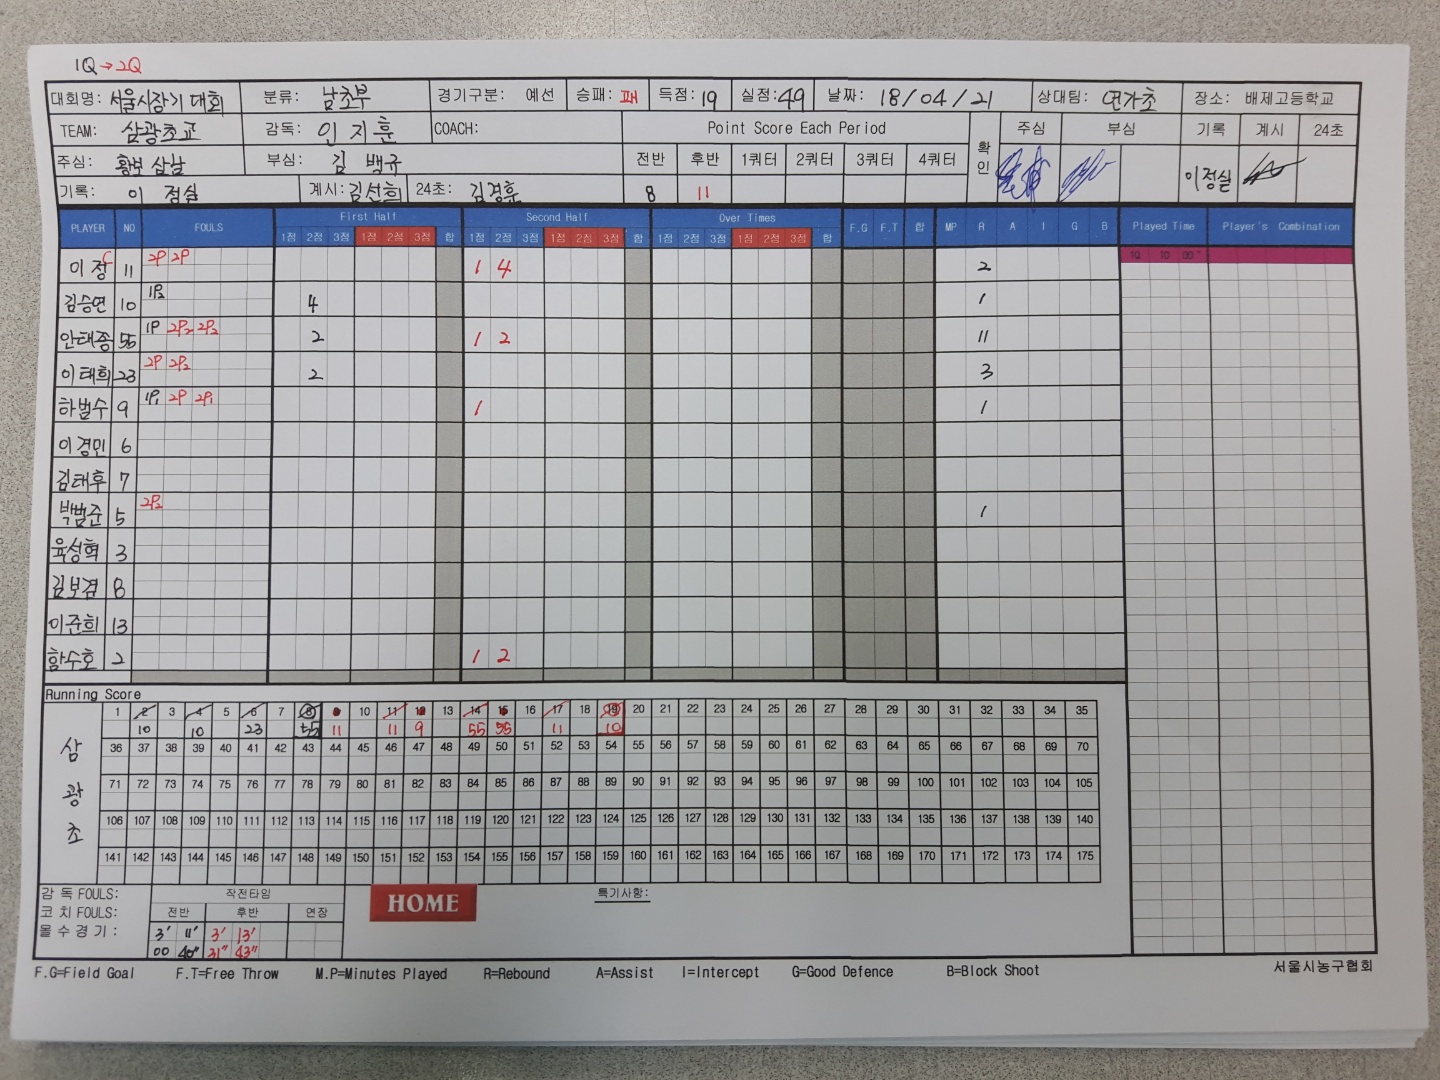 1Q → 2Q
대회명: 서울시장기 대회 분류: 남초부 경기구분: 예선 승패: 패 득점: 19 실점: 49 날짜: 18/04/21 상대팀: 연가초 장소: 배제고등학교
TEAM: 삼광초교 감독: 인지훈 COACH: Point Score Each Period 확인 주심 부심 기록 계시 24초
주심: 황보삼남 부심: 김백규 전반 후반 1쿼터 2쿼터 3쿼터 4쿼터 이정실
기록: 이정실 계시: 김선희 24초: 김경훈 8 11
PLAYER NO FOULS First Half Second Half Over Times F.G F.T 합 MP R A I G B Played Time Player's Combination
1점 2점 3점 1점 2점 3점 합 1점 2점 3점 1점 2점 3점 합 1점 2점 3점 1점 2점 3점 합
1Q 10 00"
이정 C 11 2P 2P 1 4 2
김승연 10 1P2 4 1
안태종 55 1P 2P2 2P2 2 1 2 11
이태희 23 2P 2P2 2 3
하범수 9 1P1 2P 2P1 1 1
이경민 6
김태후 7
박범준 5 2P2 1
육성혁 3
김보겸 8
이준희 13
함수호 2 1 2
Running Score
삼광초
1 2 3 4 5 6 7 8 9 10 11 12 13 14 15 16 17 18 19 20 21 22 23 24 25 26 27 28 29 30 31 32 33 34 35
10 10 23 55 11 11 9 55 55 11 10
36 37 38 39 40 41 42 43 44 45 46 47 48 49 50 51 52 53 54 55 56 57 58 59 60 61 62 63 64 65 66 67 68 69 70
71 72 73 74 75 76 77 78 79 80 81 82 83 84 85 86 87 88 89 90 91 92 93 94 95 96 97 98 99 100 101 102 103 104 105
106 107 108 109 110 111 112 113 114 115 116 117 118 119 120 121 122 123 124 125 126 127 128 129 130 131 132 133 134 135 136 137 138 139 140
141 142 143 144 145 146 147 148 149 150 151 152 153 154 155 156 157 158 159 160 161 162 163 164 165 166 167 168 169 170 171 172 173 174 175
감 독 FOULS: 작전타임 HOME 특기사항:
코 치 FOULS: 전반 후반 연장
몰 수 경 기 : 3' 11' 3' 13'
00 40" 31" 43"
F.G=Field Goal F.T=Free Throw M.P=Minutes Played R=Rebound A=Assist I=Intercept G=Good Defence B=Block Shoot 서울시농구협회